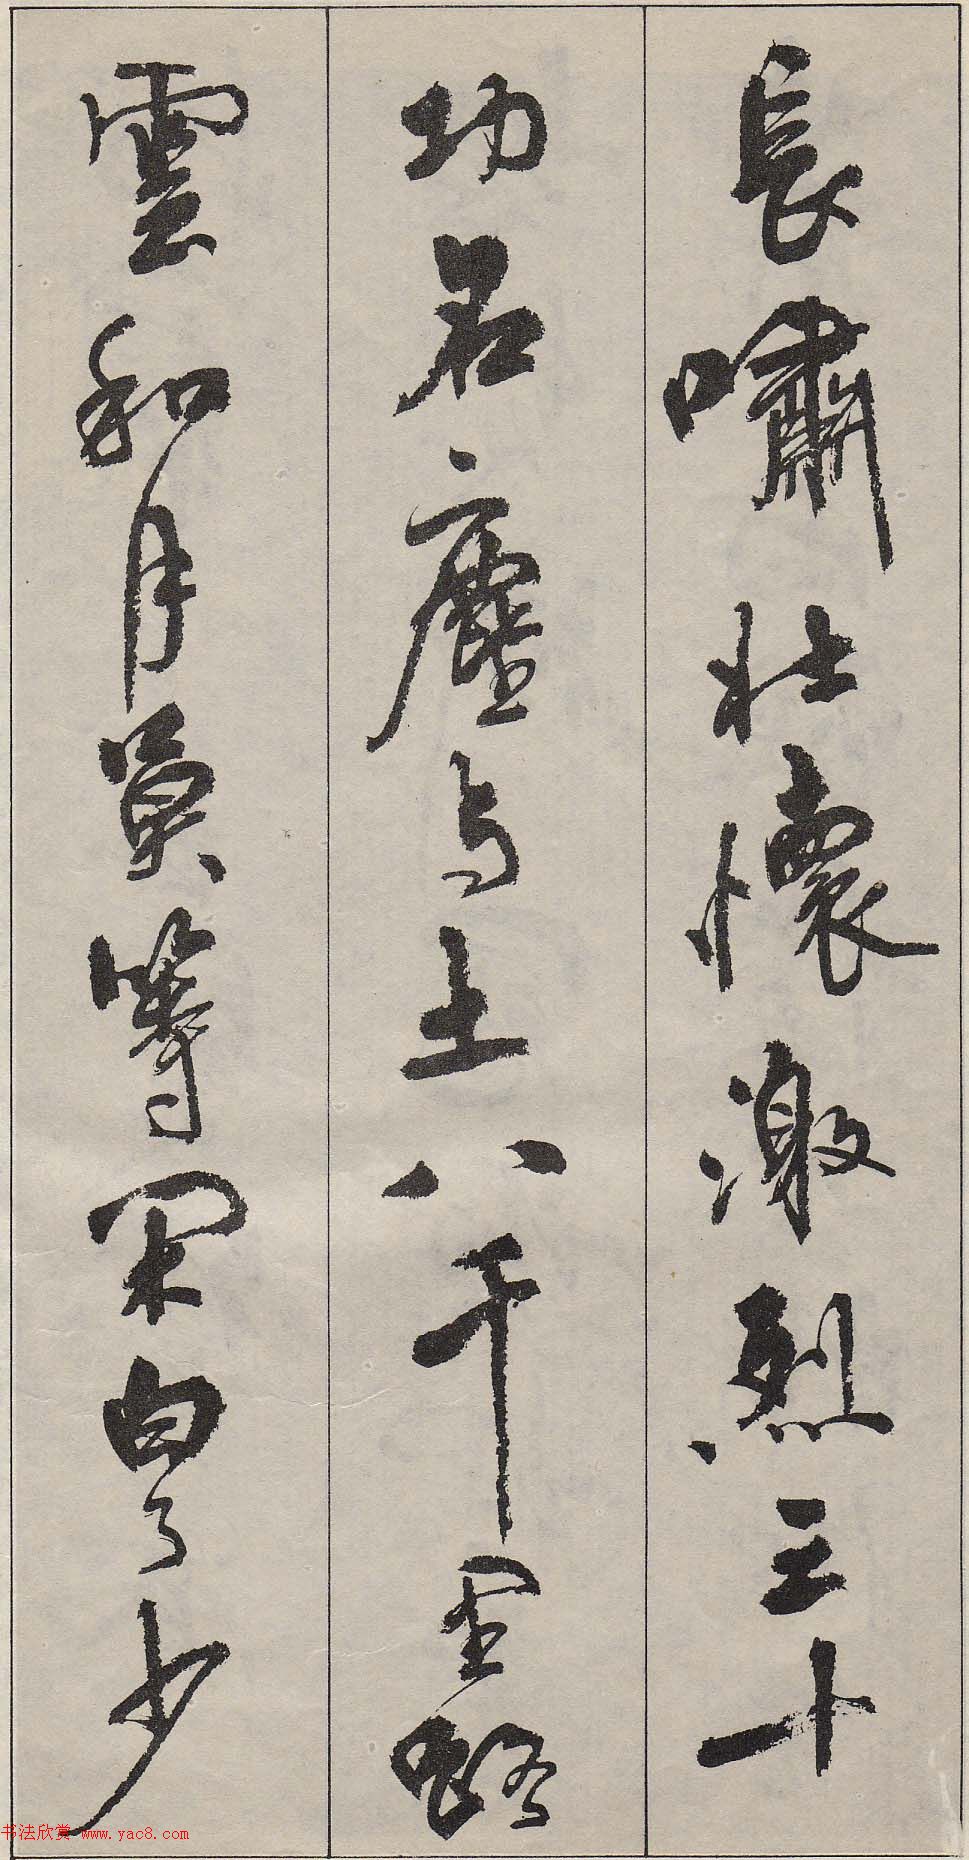 長嘯壯懷激烈三十
功名塵与土八千里路
雲和月莫等閑白了少
书法欣赏 www.yac8.com